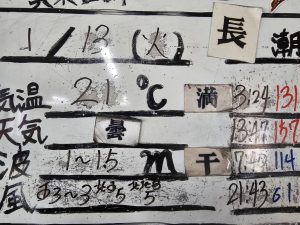 1/13(火) 長 潮
気温 21℃ 満 3:24 131
天気 曇 13:47 157
波 1~1.5m 干 7:43 114
風 21:43 61